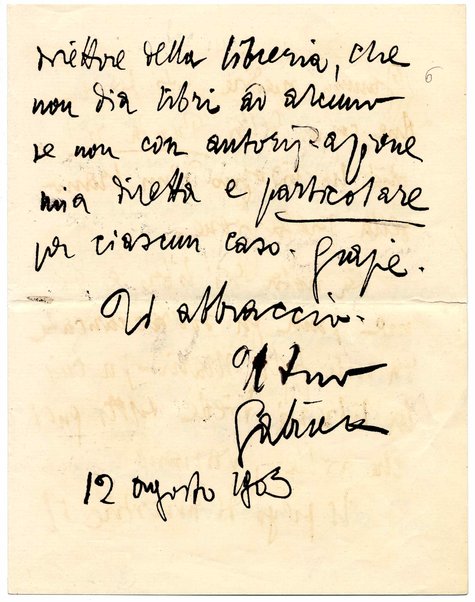 direttore della libreria, che
6
non dia libri ad alcuno
se non con autorizzazione
mia diretta e particolare
per ciascun caso. Grazie.
Ti abbraccio.
Il tuo
Gabriele
12 agosto 1903